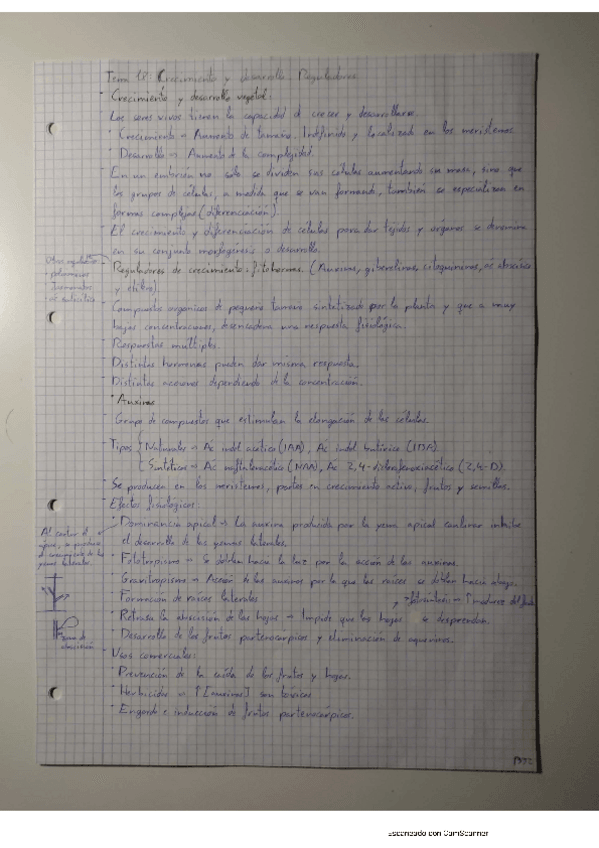 Tema 18: Crecimiento y desarrollo. Reguladores
· Crecimiento y desarrollo vegetal:
- Los seres vivos tienen la capacidad de crecer y desarrollarse.
· Crecimiento → Aumento de tamaño. Indefinido y localizado en los meristemos
· Desarrollo → Aumento de la complejidad.
- En un embrión no solo se dividen sus células aumentando su masa, sino que
los grupos de células, a medida que se van formando, también se especializan en
formas complejas (diferenciación).
- El crecimiento y diferenciación de células para dar tejidos y órganos se denomina
en su conjunto morfogénesis o desarrollo.
Otros reguladores
- poliaminas
- Jasmonatos
- ac salicílico
- Reguladores de crecimiento: fitohormonas. (Auxinas, giberelinas, citoquininas, ác abscísico
y etileno).
- Compuestos orgánicos de pequeño tamaño sintetizado por la planta y que a muy
bajas concentraciones, desencadena una respuesta fisiológica.
- Respuestas múltiples.
- Distintas hormonas pueden dar misma respuesta.
- Distintas acciones dependiendo de la concentración.
· Auxinas
- Grupo de compuestos que estimulan la elongación de las células.
- Tipos { Naturales → Ác indol acético (IAA), Ác indol butírico (IBA).
Sintéticas → Ác naftilenacético (NAA), Ác 2,4-diclorofenoxiacético (2,4-D).
- Se producen en los meristemos, partes en crecimiento activo, frutos y semillas.
- Efectos fisiológicos:
· Dominancia apical → La auxina producida por la yema apical caulinar inhibe
el desarrollo de las yemas laterales.
Al cortar el
ápice, se produce
el crecimiento de las
yemas laterales
· Fototropismo → Se doblan hacia la luz por la acción de las auxinas.
· Gravitropismo → Acción de las auxinas por la que las raíces se doblan hacia abajo.
· Formación de raíces laterales
· Retrasa la abscisión de las hojas → Impide que las hojas se desprendan.
zona de
abscisión
· Desarrollo de los frutos partenocárpicos y eliminación de
- Usos comerciales:
· Prevención de la caída de los frutos y hojas.
· Herbicidas → ↑ [auxinas] son tóxicas
· Engorde e inducción de frutos partenocárpicos.
Escaneado con CamScanner